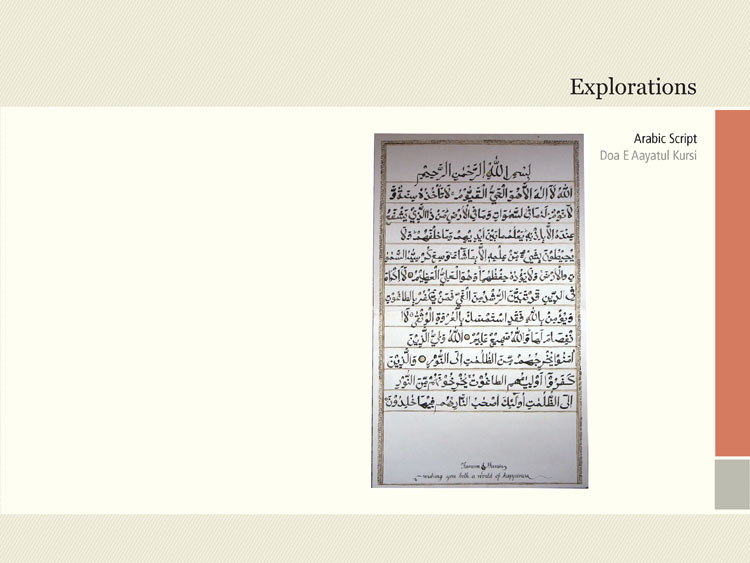 Explorations
Arabic Script
Doa E Aayatul Kursi
بِسْمِ اللّٰهِ الرَّحْمٰنِ الرَّحِيْمِ
اَللّٰهُ لَآ اِلٰهَ اِلَّا هُوَ الْحَيُّ الْقَيُّوْمُ لَا تَاْخُذُهٗ سِنَةٌ وَّ
لَا نَوْمٌ لَهٗ مَا فِي السَّمٰوٰتِ وَمَا فِي الْاَرْضِ مَنْ ذَا الَّذِيْ يَشْفَعُ
عِنْدَهٗ اِلَّا بِاِذْنِهٖ يَعْلَمُ مَا بَيْنَ اَيْدِيْهِمْ وَمَا خَلْفَهُمْ وَلَا
يُحِيْطُوْنَ بِشَيْءٍ مِّنْ عِلْمِهٖ اِلَّا بِمَا شَآءَ وَسِعَ كُرْسِيُّهُ السَّمٰوٰ
تِ وَالْاَرْضَ وَلَا يَـُٔوْدُهٗ حِفْظُهُمَا وَهُوَ الْعَلِيُّ الْعَظِيْمُ لَآ اِكْرَاهَ
فِى الدِّيْنِ قَدْ تَّبَيَّنَ الرُّشْدُ مِنَ الْغَيِّ فَمَنْ يَّكْفُرْ بِالطَّاغُوْتِ
وَيُؤْمِنْ بِاللّٰهِ فَقَدِ اسْتَمْسَكَ بِالْعُرْوَةِ الْوُثْقٰى لَا
انْفِصَامَ لَهَا وَاللّٰهُ سَمِيْعٌ عَلِيْمٌ اَللّٰهُ وَلِيُّ الَّذِيْنَ
اٰمَنُوْا يُخْرِجُهُمْ مِّنَ الظُّلُمٰتِ اِلَى النُّوْرِ وَالَّذِيْنَ
كَفَرُوْٓا اَوْلِيٰٓـُٔهُمُ الطَّاغُوْتُ يُخْرِجُوْنَهُمْ مِّنَ النُّوْرِ
اِلَى الظُّلُمٰتِ اُولٰٓئِكَ اَصْحٰبُ النَّارِ هُمْ فِيْهَا خٰلِدُوْنَ
wishing you both a world of happiness